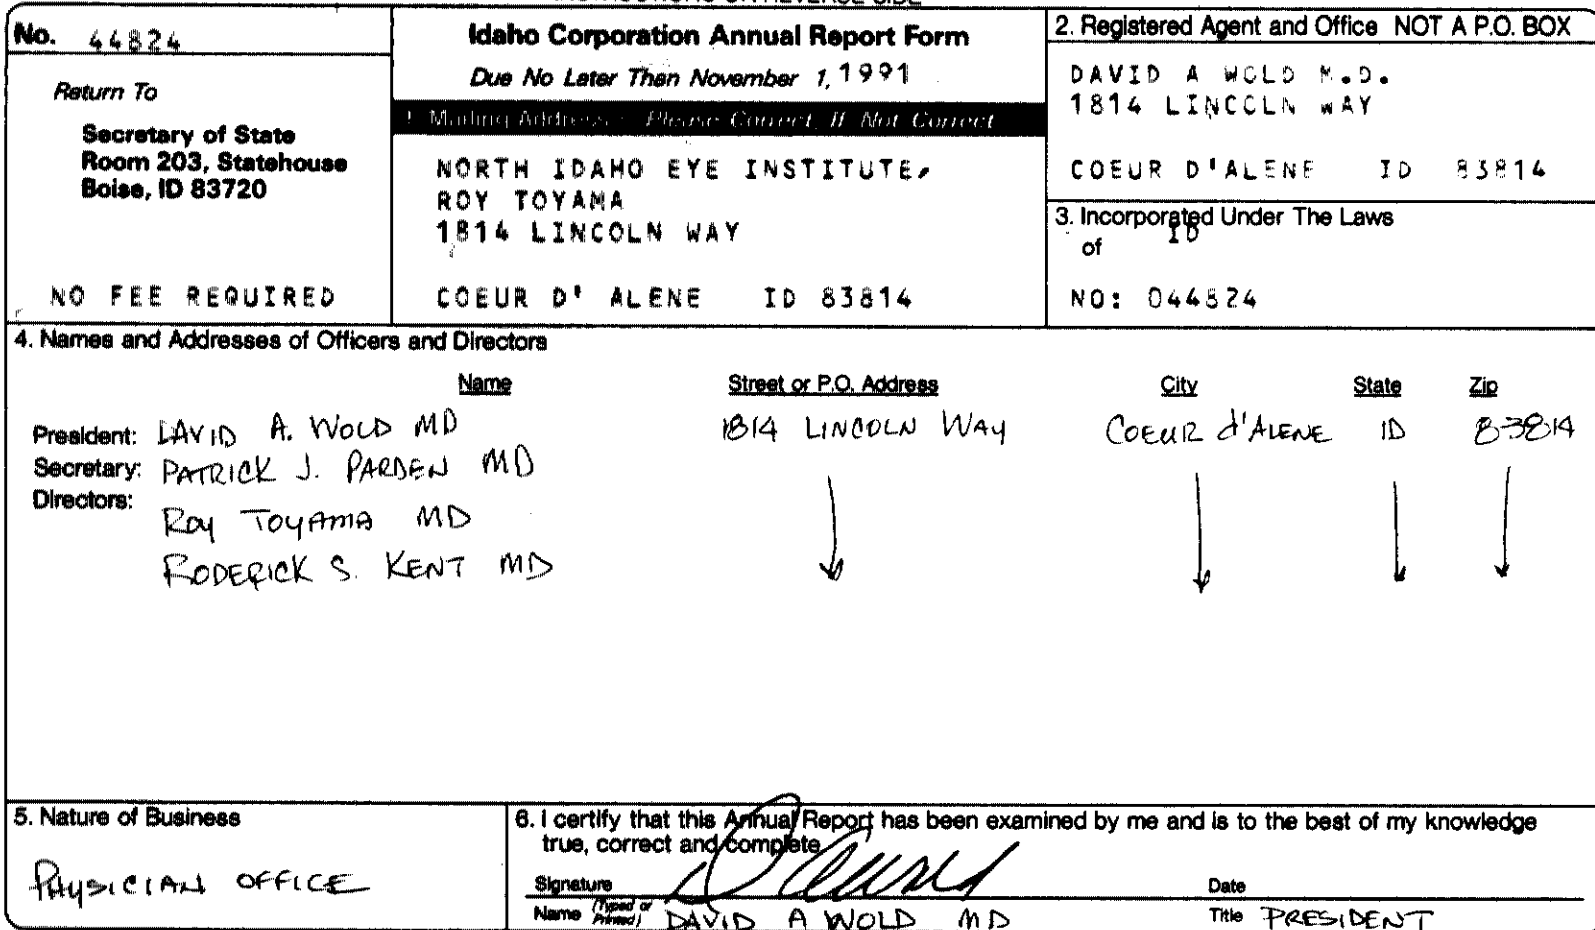 No. 44824
Return To
Secretary of State
Room 203, Statehouse
Boise, ID 83720
NO FEE REQUIRED
Idaho Corporation Annual Report Form
Due No Later Than November 1, 1991
1. Mailing Address: Please Correct, If Not Correct
NORTH IDAHO EYE INSTITUTE,
ROY TOYAMA
1814 LINCOLN WAY
COEUR D' ALENE ID 83814
2. Registered Agent and Office NOT A P.O. BOX
DAVID A WOLD M.D.
1814 LINCOLN WAY
COEUR D'ALENE ID 83814
3. Incorporated Under The Laws
of ID
NO: 044824
4. Names and Addresses of Officers and Directors
Name Street or P.O. Address City State Zip
President: DAVID A. WOLD MD 1814 LINCOLN WAY COEUR d'ALENE ID 83814
Secretary: PATRICK J. PARDEN MD
Directors:
ROY TOYAMA MD
RODERICK S. KENT MD
5. Nature of Business
PHYSICIAN OFFICE
6. I certify that this Annual Report has been examined by me and is to the best of my knowledge
true, correct and complete
Signature Date
Name (Typed or Printed) DAVID A WOLD MD Title PRESIDENT